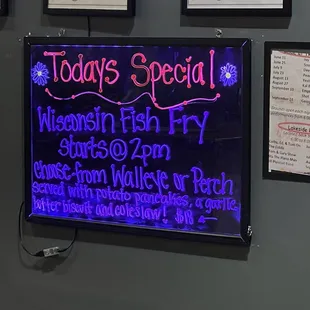 Todays Special
Wisconsin Fish Fry
starts@2pm
choose from Walleye or Perch
served with potato pancakes, a garlic
butter biscuit and coleslaw! $18